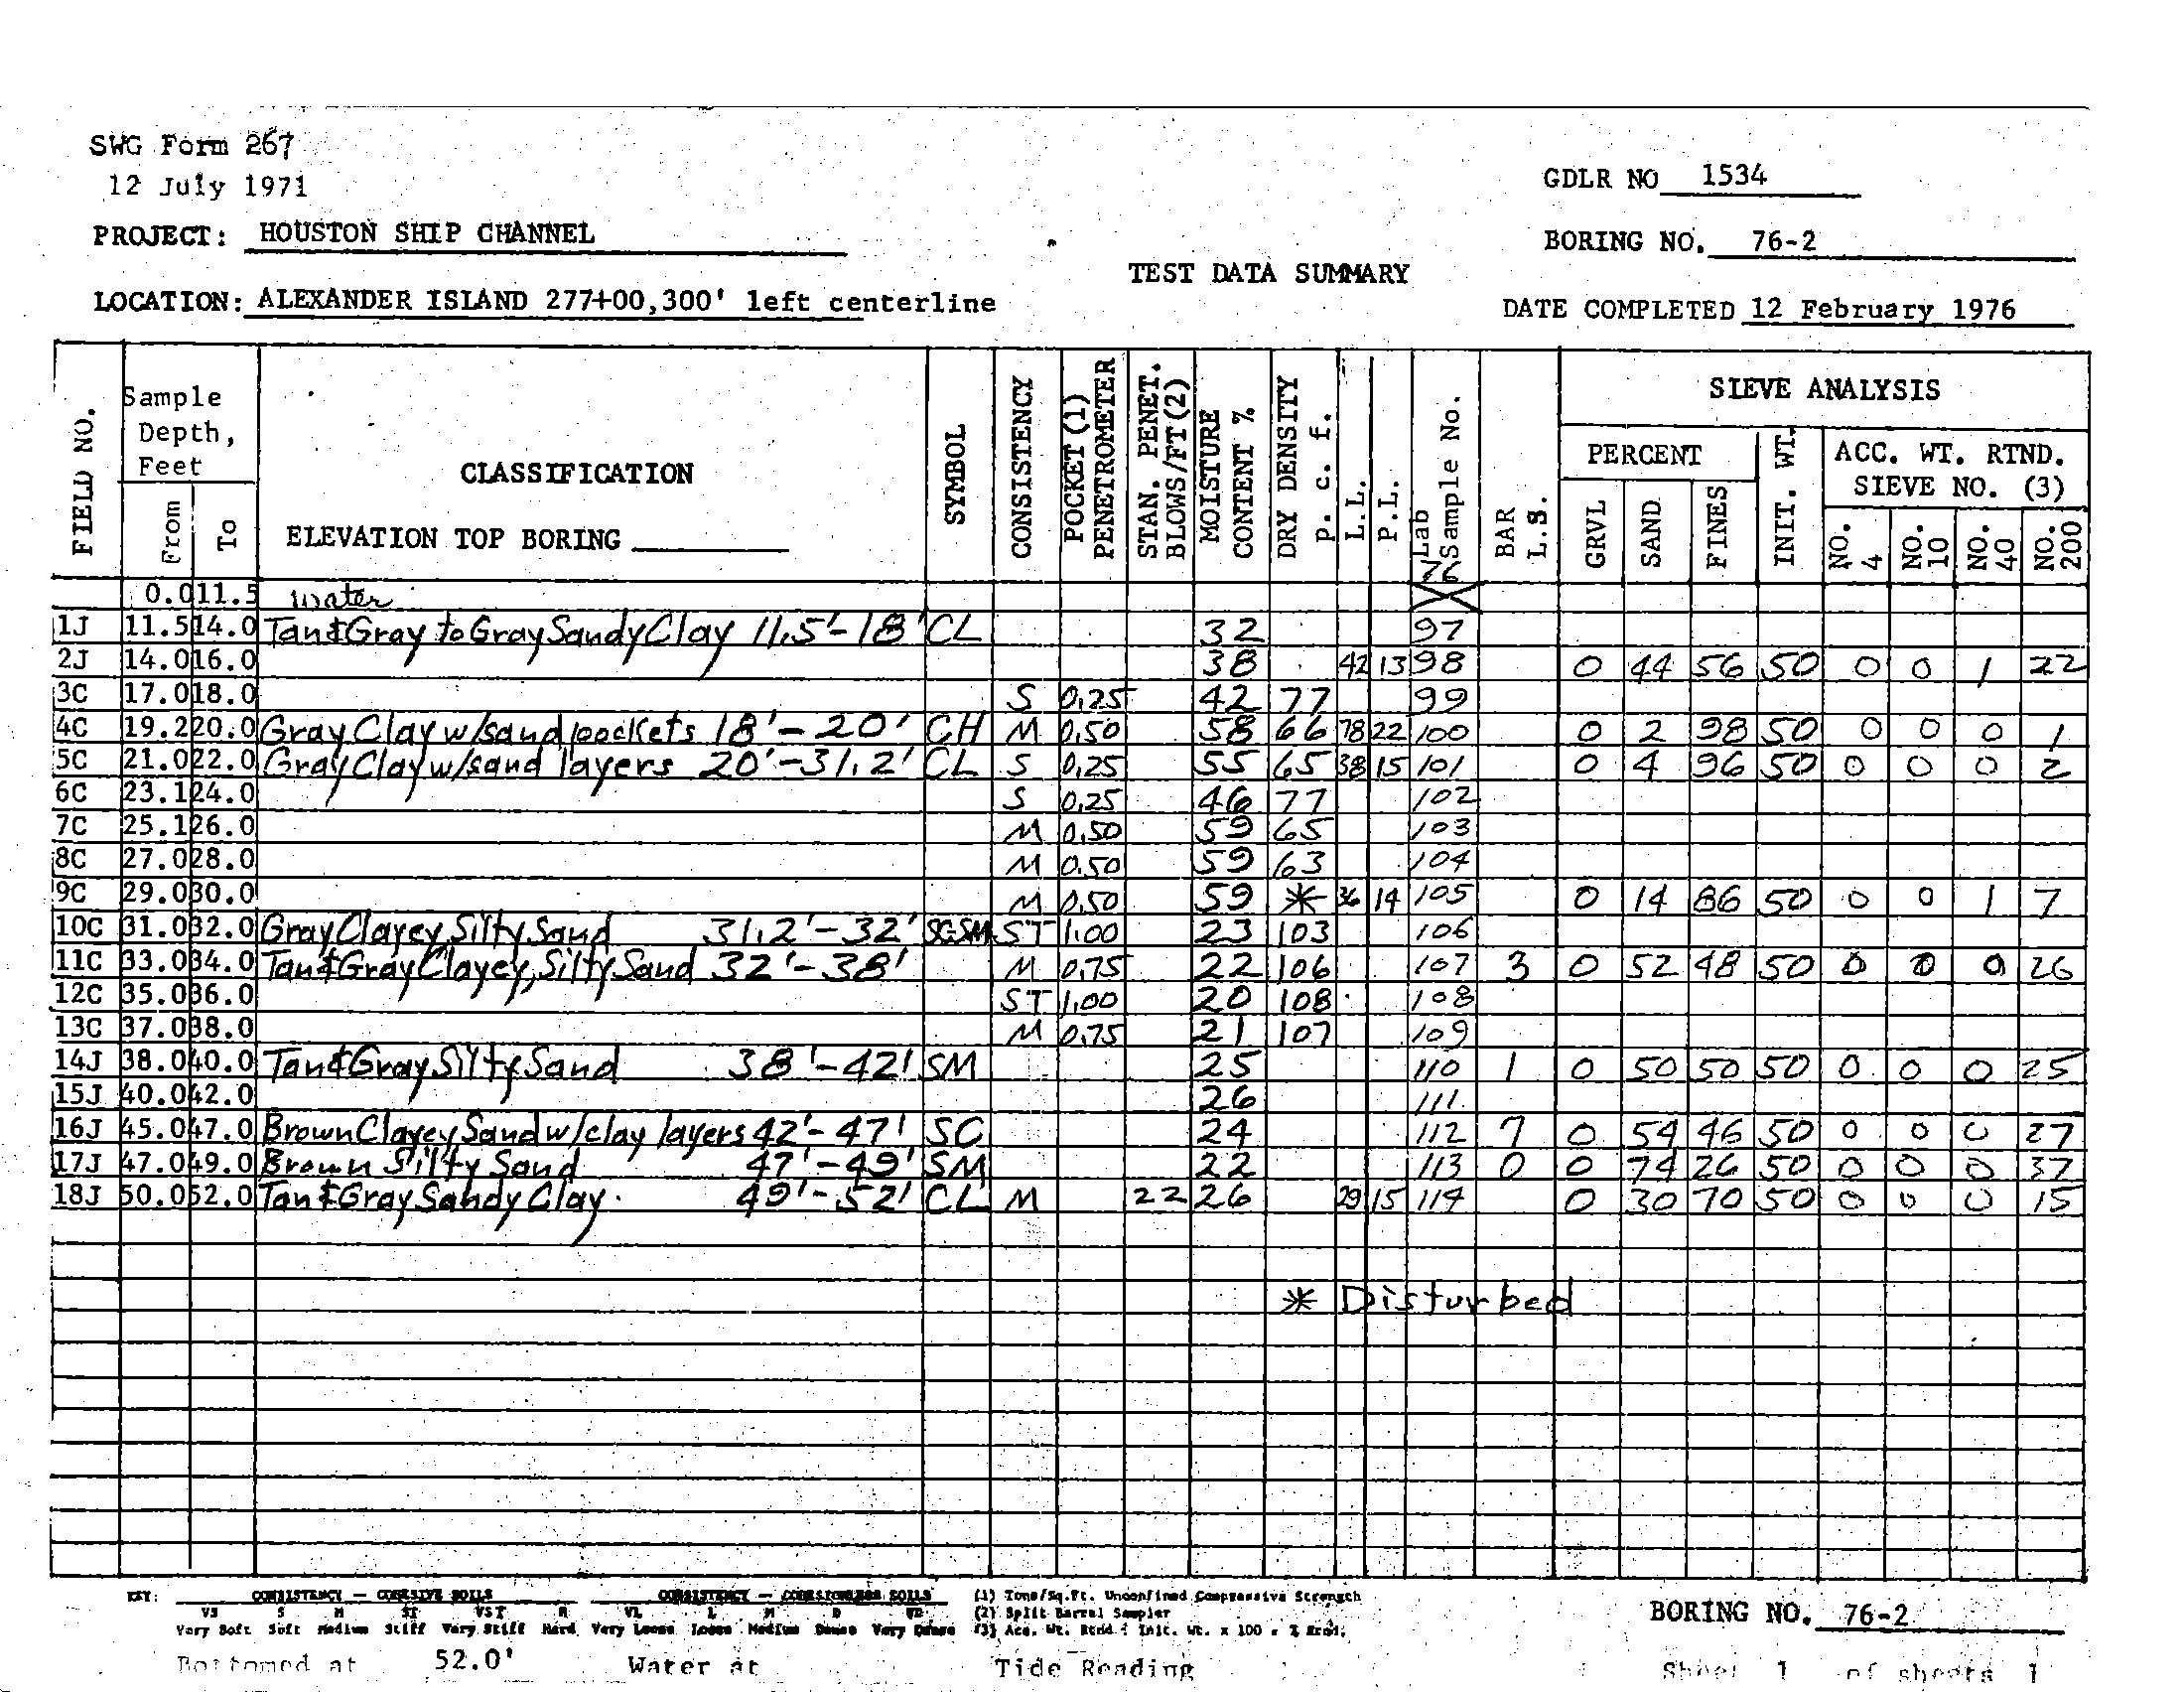 SWG Form 267
12 July 1971
GDLR NO 1534
PROJECT: HOUSTON SHIP CHANNEL
BORING NO. 76-2
TEST DATA SUMMARY
LOCATION: ALEXANDER ISLAND 277+00,300' left centerline
DATE COMPLETED 12 February 1976
FIELD NO.
Sample Depth, Feet
From
To
CLASSIFICATION
ELEVATION TOP BORING
SYMBOL
CONSISTENCY
POCKET (1) PENETROMETER
STAN. PENET. BLOWS/FT(2)
MOISTURE CONTENT %
DRY DENSITY p. c. f.
L.L.
P.L.
Lab Sample No.
76
BAR L.S.
SIEVE ANALYSIS
PERCENT
GRVL
SAND
FINES
INIT. WT.
ACC. WT. RTND.
SIEVE NO. (3)
NO. 4
NO. 10
NO. 40
NO. 200
0.0 11.5 water
1J 11.5 14.0 Tan & Gray to Gray Sandy Clay 11.5'-18' CL 32 97
2J 14.0 16.0 38 42 13 98 0 44 56 50 0 0 1 22
3C 17.0 18.0 S 0.25 42 77 99
4C 19.2 20.0 Gray Clay w/sand pockets 18'-20' CH M 0.50 58 66 78 22 100 0 2 98 50 0 0 0 1
5C 21.0 22.0 Gray Clay w/sand layers 20'-31.2' CL S 0.25 55 65 38 15 101 0 4 96 50 0 0 0 2
6C 23.1 24.0 S 0.25 46 77 102
7C 25.1 26.0 M 0.50 59 65 103
8C 27.0 28.0 M 0.50 59 63 104
9C 29.0 30.0 M 0.50 59 * 36 14 105 0 14 86 50 0 0 1 7
10C 31.0 32.0 Gray Clayey, Silty Sand 31.2'-32' SC-SM ST 1.00 23 103 106
11C 33.0 34.0 Tan & Gray Clayey, Silty Sand 32'-38' M 0.75 22 106 107 3 0 52 48 50 0 0 0 26
12C 35.0 36.0 ST 1.00 20 108 108
13C 37.0 38.0 M 0.75 21 107 109
14J 38.0 40.0 Tan & Gray Silty Sand 38'-42' SM 25 110 1 0 50 50 50 0 0 0 25
15J 40.0 42.0 26 111
16J 45.0 47.0 Brown Clayey Sand w/clay layers 42'-47' SC 24 112 7 0 54 46 50 0 0 0 27
17J 47.0 49.0 Brown Silty Sand 47'-49' SM 22 113 0 0 74 26 50 0 0 0 37
18J 50.0 52.0 Tan & Gray Sandy Clay. 49'-52' CL M 22 26 29 15 114 0 30 70 50 0 0 0 15
* Disturbed
KEY: CONSISTENCY — COHESIVE SOILS CONSISTENCY — COHESIONLESS SOILS
VS S M ST VST H VL L M D VD
Very Soft Soft Medium Stiff Very Stiff Hard Very Loose Loose Medium Dense Very Dense
(1) Tons/Sq.Ft. Unconfined Compressive Strength
(2) Split Barrel Sampler
(3) Acc. Wt. Rtnd ÷ Init. Wt. x 100 =
BORING NO. 76-2
Bottomed at 52.0' Water at Tide Reading Sheet 1 of sheets 1